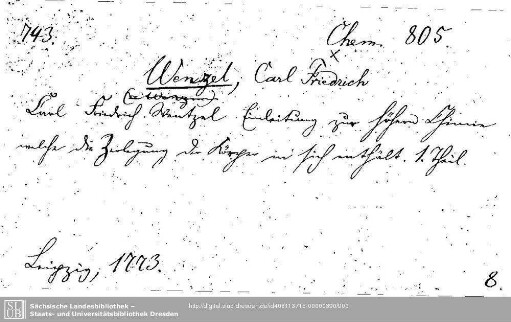 743.
Chem. 805.
x
Wenzel, Carl Friedrich
Carl Friedrich Wentzel Einleitung zur höhern Chimie
welche die Zerlegung der Körper in sich enthält. 1. Theil.
Leipzig, 1773.
8.
SLUB
Sächsische Landesbibliothek –
Staats- und Universitätsbibliothek Dresden